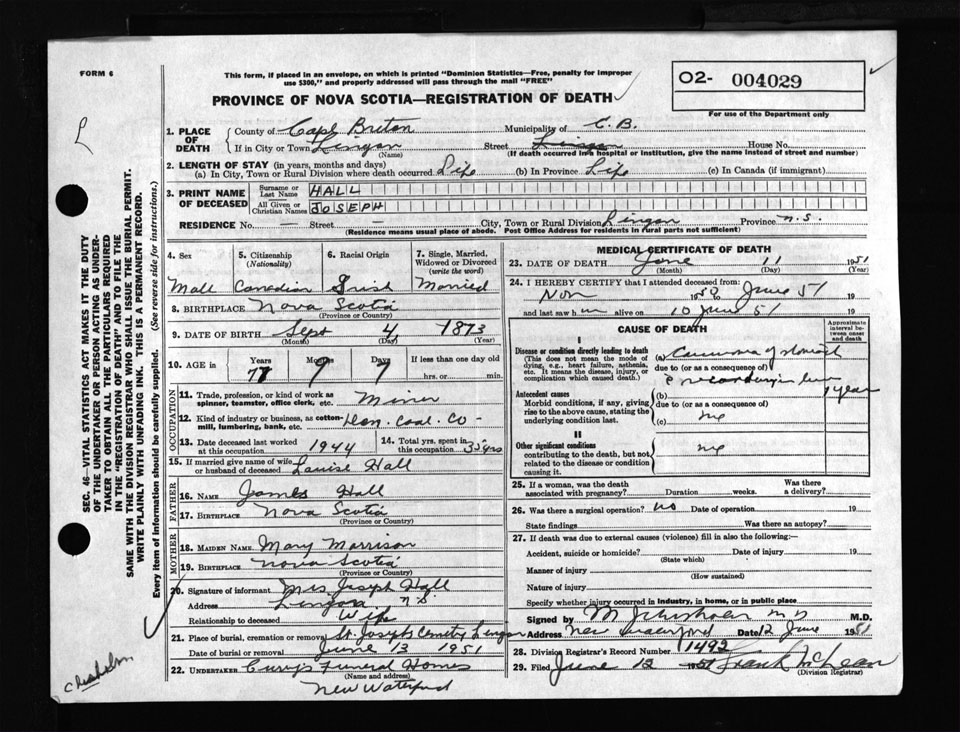 FORM 6
This form, if placed in an envelope, on which is printed "Dominion Statistics—Free, penalty for improper
use $300," and properly addressed will pass through the mail "FREE"
PROVINCE OF NOVA SCOTIA—REGISTRATION OF DEATH
O2- 004029
For use of the Department only
L
SEC. 46—VITAL STATISTICS ACT MAKES IT THE DUTY
OF THE UNDERTAKER OR PERSON ACTING AS UNDER-
TAKER TO OBTAIN ALL THE PARTICULARS REQUIRED
IN THE "REGISTRATION OF DEATH" AND TO FILE THE
SAME WITH THE DIVISION REGISTRAR WHO SHALL ISSUE THE BURIAL PERMIT.
WRITE PLAINLY WITH UNFADING INK. THIS IS A PERMANENT RECORD.
Every item of information should be carefully supplied. (See reverse side for instructions.)
1. PLACE OF DEATH
County of Cape Breton Municipality of C.B.
If in City or Town Lingan Street Lingan House No.
(Name) (If death occurred in a hospital or institution, give the name instead of street and number)
2. LENGTH OF STAY (in years, months and days)
(a) In City, Town or Rural Division where death occurred Life (b) In Province Life (c) In Canada (if immigrant)
3. PRINT NAME OF DECEASED
Surname or Last Name HALL
All Given or Christian Names JOSEPH
RESIDENCE No. — Street — City, Town or Rural Division Lingan Province N.S.
(Residence means usual place of abode. Post Office Address for residents in rural parts not sufficient)
4. Sex 5. Citizenship (Nationality) 6. Racial Origin 7. Single, Married, Widowed or Divorced (write the word)
Male Canadian Irish Married
8. BIRTHPLACE Nova Scotia
(Province or Country)
9. DATE OF BIRTH Sept 4 1873
(Month) (Day) (Year)
10. AGE in Years Months Days If less than one day old
77 9 7 hrs. or min.
OCCUPATION
11. Trade, profession, or kind of work as spinner, teamster, office clerk, etc. Miner
12. Kind of industry or business, as cotton-mill, lumbering, bank, etc. Dom. Coal. Co
13. Date deceased last worked at this occupation 1944 14. Total yrs. spent in this occupation 35 yrs
15. If married give name of wife or husband of deceased Louise Hall
FATHER
16. NAME James Hall
17. BIRTHPLACE Nova Scotia
(Province or Country)
MOTHER
18. MAIDEN NAME Mary Morrison
19. BIRTHPLACE Nova Scotia
(Province or Country)
20. Signature of informant Mrs Joseph Hall
Address Lingan N.S.
Relationship to deceased Wife
21. Place of burial, cremation or removal St. Josephs Cemetry Lingan
Date of burial or removal June 13 1951
22. UNDERTAKER Curry's Funeral Homes
(Name and address)
New Waterford
Chisholm
MEDICAL CERTIFICATE OF DEATH
23. DATE OF DEATH June 11 1951
(Month) (Day) (Year)
24. I HEREBY CERTIFY that I attended deceased from:
Nov 1950 to June 51 19
and last saw him alive on 10 June 51 19
CAUSE OF DEATH
Approximate interval between onset and death
I
Disease or condition directly leading to death
(This does not mean the mode of dying, e.g., heart failure, asthenia, etc. It means the disease, injury, or complication which caused death.)
(a) Carcinoma of
due to (or as a consequence of)
secondary in
Antecedent causes
Morbid conditions, if any, giving rise to the above cause, stating the underlying condition last.
(b) year
due to (or as a consequence of)
(c)
II
Other significant conditions
contributing to the death, but not related to the disease or condition causing it.
25. If a woman, was the death associated with pregnancy? Duration weeks. Was there a delivery?
26. Was there a surgical operation? No Date of operation 19
State findings Was there an autopsy?
27. If death was due to external causes (violence) fill in also the following:—
Accident, suicide or homicide? Date of injury 19
(State which)
Manner of injury
(How sustained)
Nature of injury
Specify whether injury occurred in industry, in home, or in public place
Signed by M D M.D.
Address New Waterford Date 12 June 1951
28. Division Registrar's Record Number 1492
29. Filed June 12 1951 Frank McLean
(Division Registrar)